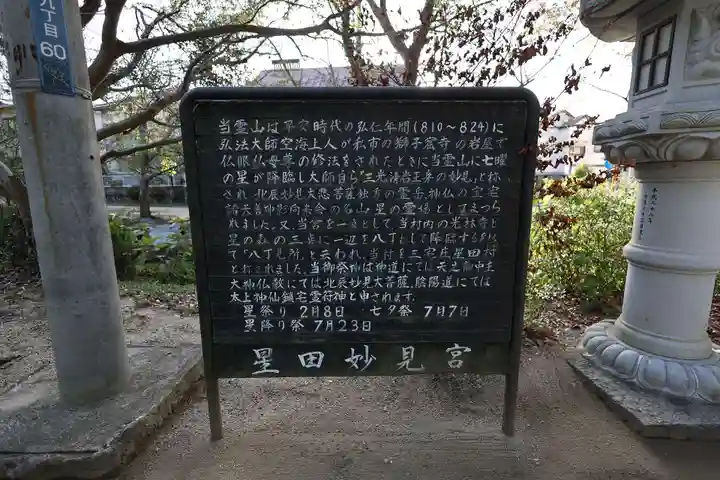 八丁目60
当霊山は平安時代の弘仁年間(810〜824)に
弘法大師空海上人が私市の獅子窟寺の岩屋で
仏眼仏母尊の修法をされたときに当霊山に七曜
の星が降臨し大師自ら「三光清岩正身の妙見」と称
され、北辰妙見大悲菩薩独秀の霊岳、神仏の宝宅
諸天善神影向来会の名山、星の霊場として祀られ
ました。又、当宮を一点として、当村内の光林寺と
星の森の三点に一辺を八丁として降臨するをも
て「八丁三所」と云われ、当村を三宅庄星田村
と称されました。当御祭神は神道にては天之御中主
大神仏教にては北辰妙見大菩薩、陰陽道にては
太上神仙鎮宅霊符神と申されます。
星祭り 2月8日 七夕祭 7月7日
星降り祭 7月23日
星田妙見宮